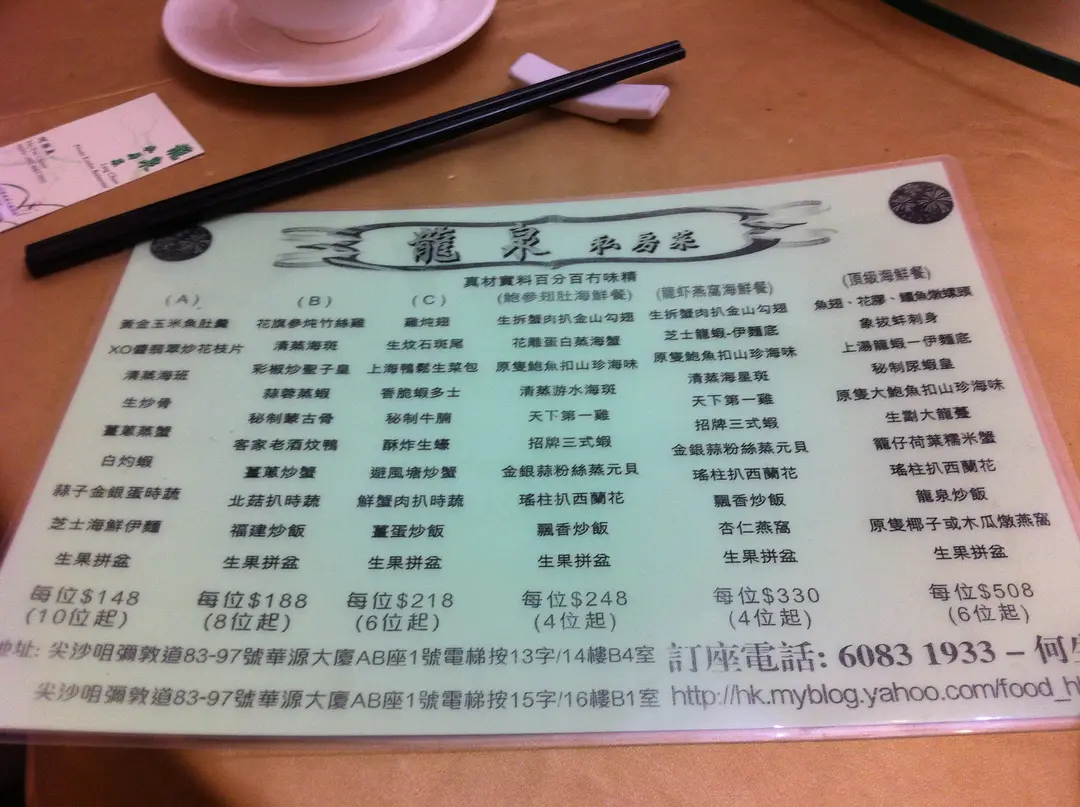 龍泉
龍泉 私房菜
真材實料百分百冇味精
(A)
黃金玉米魚肚羹
XO醬翡翠炒花枝片
清蒸海班
生炒骨
薑蔥蒸蟹
白灼蝦
蒜子金銀蛋時蔬
芝士海鮮伊麵
生果拼盆
每位$148
(10位起)
(B)
花旗參炖竹絲雞
清蒸海斑
彩椒炒聖子皇
蒜蓉蒸蝦
秘制蒙古骨
客家老酒炆鴨
薑蔥炒蟹
北菇扒時蔬
福建炒飯
生果拼盆
每位$188
(8位起)
(C)
雞炖翅
生炆石斑尾
上海鴨鬆生菜包
香脆蝦多士
秘制牛腩
酥炸生蠔
避風塘炒蟹
鮮蟹肉扒時蔬
薑蛋炒飯
生果拼盆
每位$218
(6位起)
(鮑參翅肚海鮮餐)
生拆蟹肉扒金山勾翅
花雕蛋白蒸海蟹
原隻鮑魚扣山珍海味
清蒸游水海斑
天下第一雞
招牌三式蝦
金銀蒜粉絲蒸元貝
瑤柱扒西蘭花
飄香炒飯
生果拼盆
每位$248
(4位起)
(龍虾燕窩海鮮餐)
生拆蟹肉扒金山勾翅
芝士龍蝦-伊麵底
原隻鮑魚扣山珍海味
清蒸海星斑
天下第一雞
招牌三式蝦
金銀蒜粉絲蒸元貝
瑤柱扒西蘭花
飄香炒飯
杏仁燕窩
生果拼盆
每位$330
(4位起)
(頂級海鮮餐)
魚翅、花膠、鱷魚燉螺頭
象拔蚌刺身
上湯龍蝦一伊麵底
秘制尿蝦皇
原隻大鮑魚扣山珍海味
生劏大龍躉
籠仔荷葉糯米蟹
瑤柱扒西蘭花
龍泉炒飯
原隻椰子或木瓜燉燕窩
生果拼盆
每位$508
(6位起)
地址: 尖沙咀彌敦道83-97號華源大廈AB座1號電梯按13字/14樓B4室
尖沙咀彌敦道83-97號華源大廈AB座1號電梯按15字/16樓B1室
訂座電話: 6083 1933 – 何生
http://hk.myblog.yahoo.com/food_h